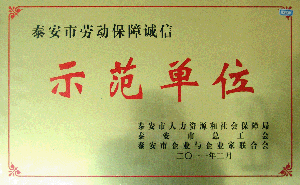 泰安市劳动保障诚信
示范单位
泰安市人力资源和社会保障局
泰安市总工会
泰安市企业与企业家联合会
二〇一一年二月